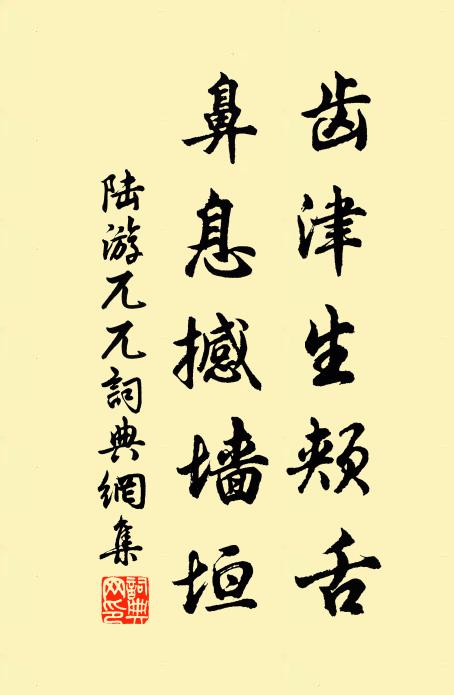 齿津生颊舌
鼻息撼墙垣
陆游兀兀詞典網集
詞典网印